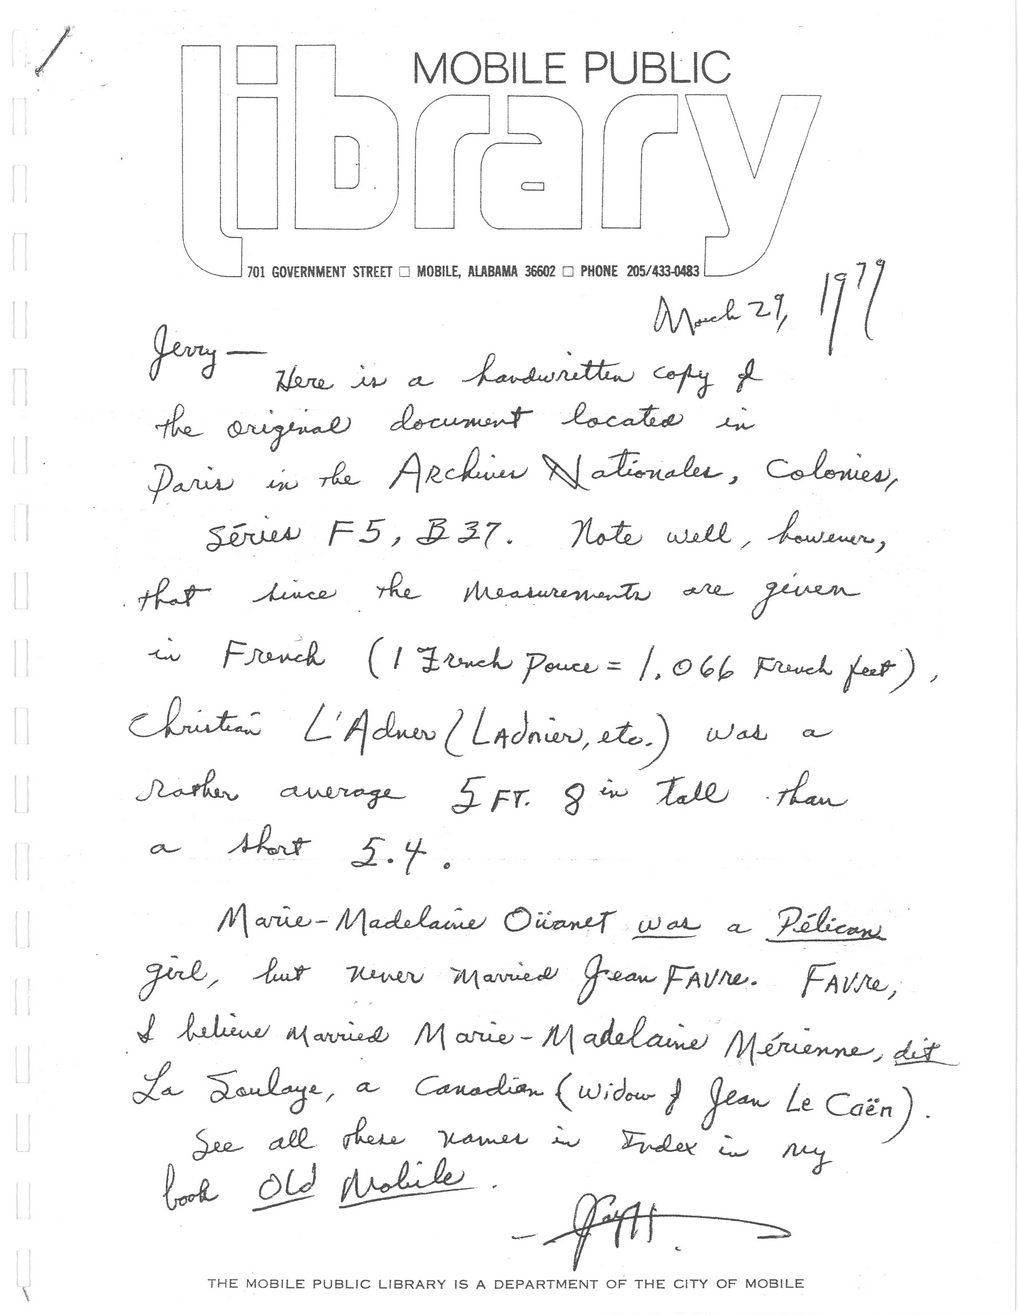 MOBILE PUBLIC
library
701 GOVERNMENT STREET □ MOBILE, ALABAMA 36602 □ PHONE 205/433-0483
March 29, 1979
Jerry —
Here is a handwritten copy of
the original document located in
Paris in the Archives Nationales, Colonies,
séries F5, B 37. Note well, however,
that since the measurements are given
in French (1 French pouce = 1.066 French feet),
Christian L'Adner (Ladnier, etc.) was a
rather average 5 FT. 8 in tall than
a short 5.4.
Marie-Madelaine Oüanet was a Pélican
girl, but never married Jean Favre. Favre,
I believe married Marie-Madelaine Mérienne, dit
La Soulaye, a Canadien (widow of Jean Le Caën).
See all these names in Index in my
book Old Mobile.
— Jay H.
THE MOBILE PUBLIC LIBRARY IS A DEPARTMENT OF THE CITY OF MOBILE